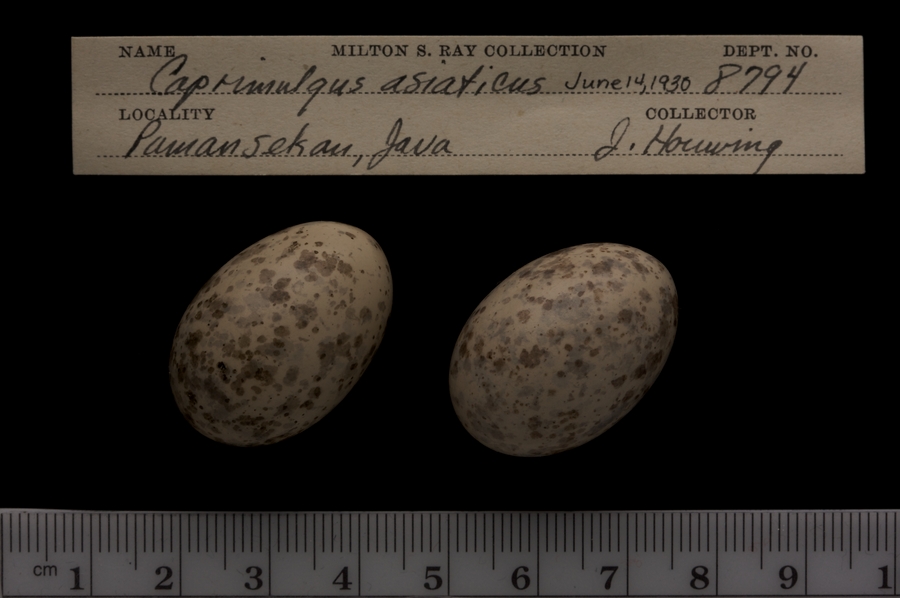 NAME MILTON S. RAY COLLECTION DEPT. NO.
Caprimulgus asiaticus June 14, 1930 8794
LOCALITY COLLECTOR
Pamansekan, Java J. Houwing
cm 1 2 3 4 5 6 7 8 9 1